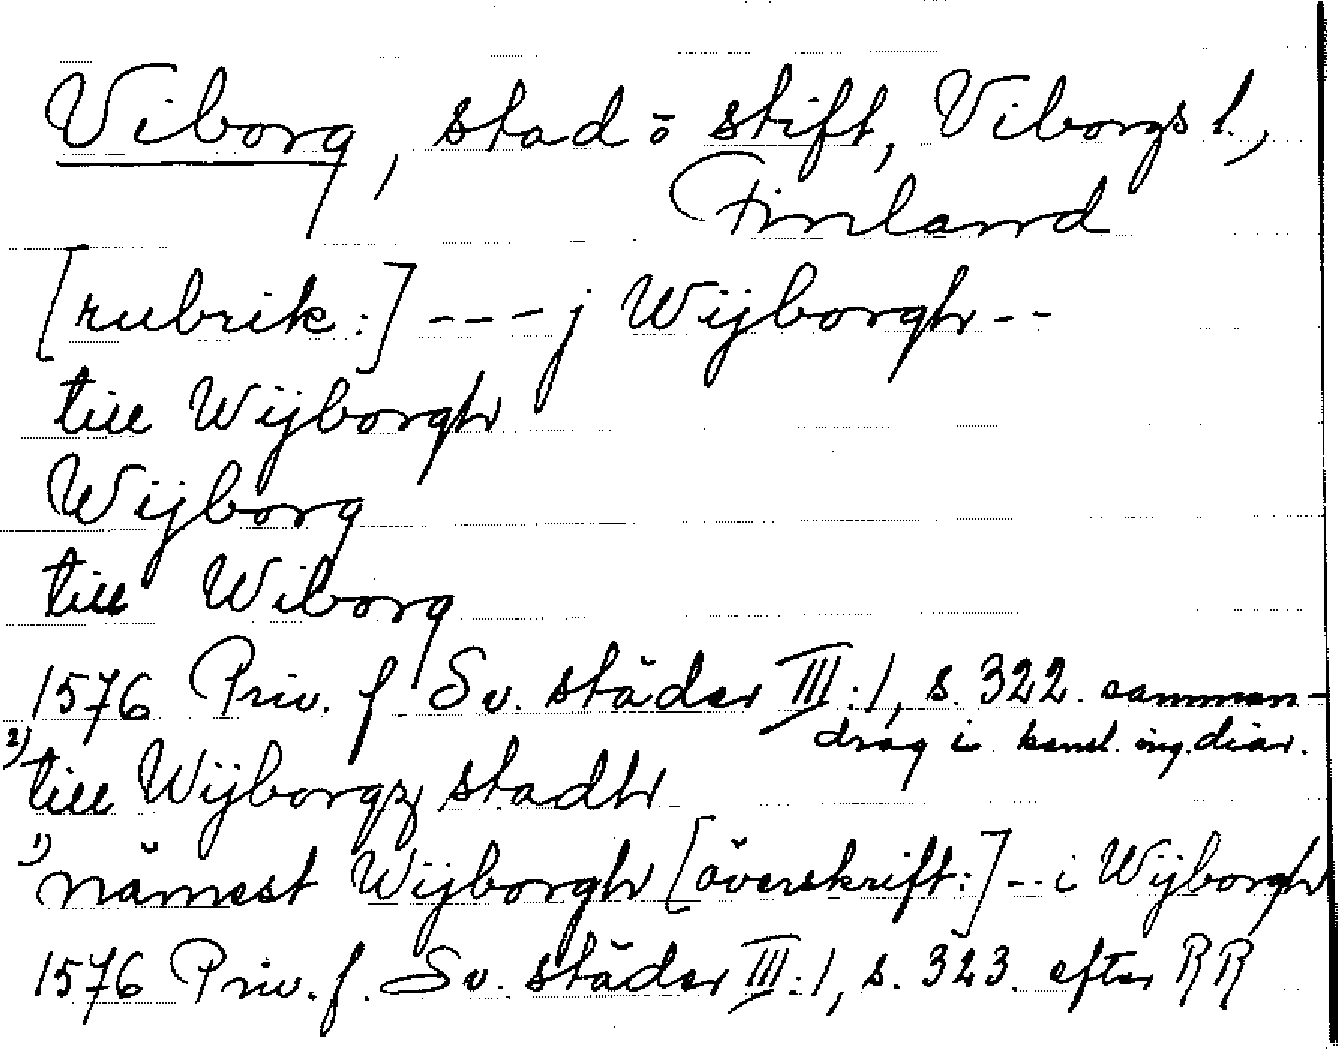 Viborg, stad o stift, Viborgs l.,
Finland
[rubrik:] --- j Wijborgh --
till Wijborgh
Wijborg
till Wiborg
1576 Priv. f Sv. städer III:1, s. 322. samman-
drag i kansl. ing. diar.
2) till Wijborgz stadh
1) nämest Wijborgh [överskrift:] -- i Wijborgh
1576 Priv. f. Sv. städer III:1, s. 323. efter RR